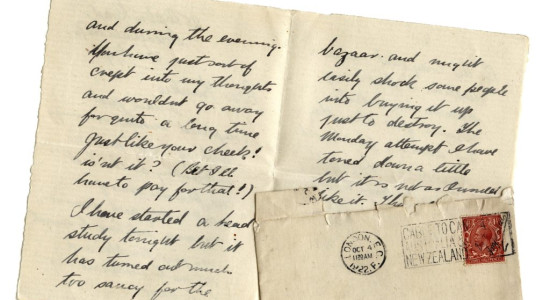 and during the evening.
You have just sort of
crept into my thoughts
and wouldnt go away
for quite a long time
Just like your cheek!
is'nt it? (Bet I'll
have to pay for that!)
I have started a head
study tonight but it
has turned out much
too saucy for the
bazaar and might
easily shock some people
into buying it up
just to destroy. The
Monday attempt I have
toned down a little
but it is not as I wanted
like it. The
LONDON. E.C.
OCT 4
11 AM
1922
CABLE TO CA
NEW ZEALAND